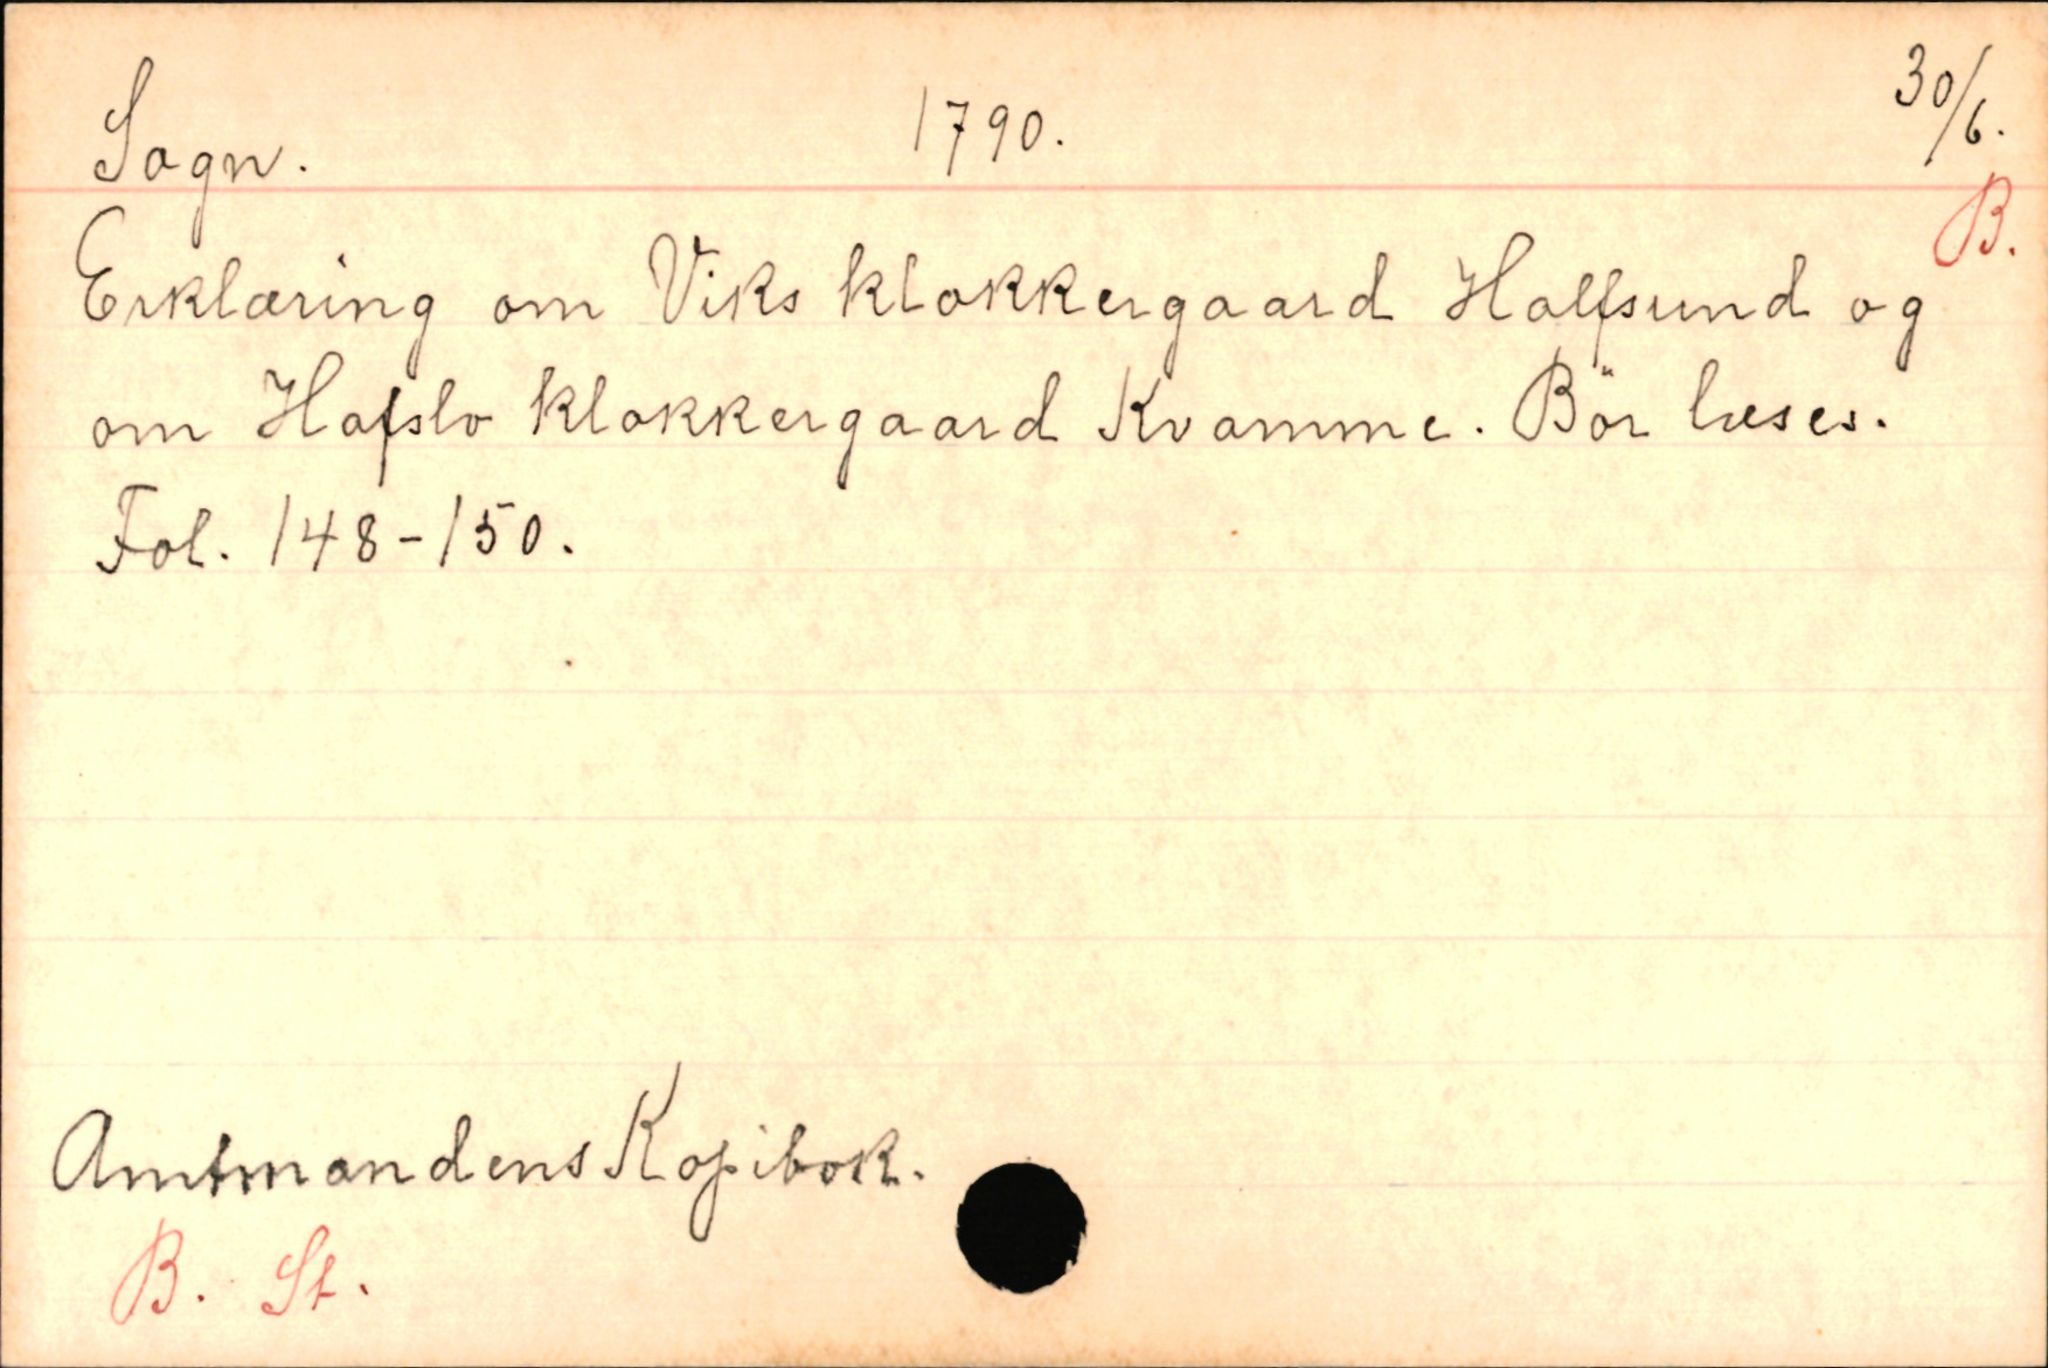 Sogn. 1790. 30/6.
B.
Erklæring om Viks klokkergaard Halfsund og
om Hafslo klokkergaard Kvamme. Bör læses.
Fol. 148-150.
Amtmandens Kopibok.
B. St.